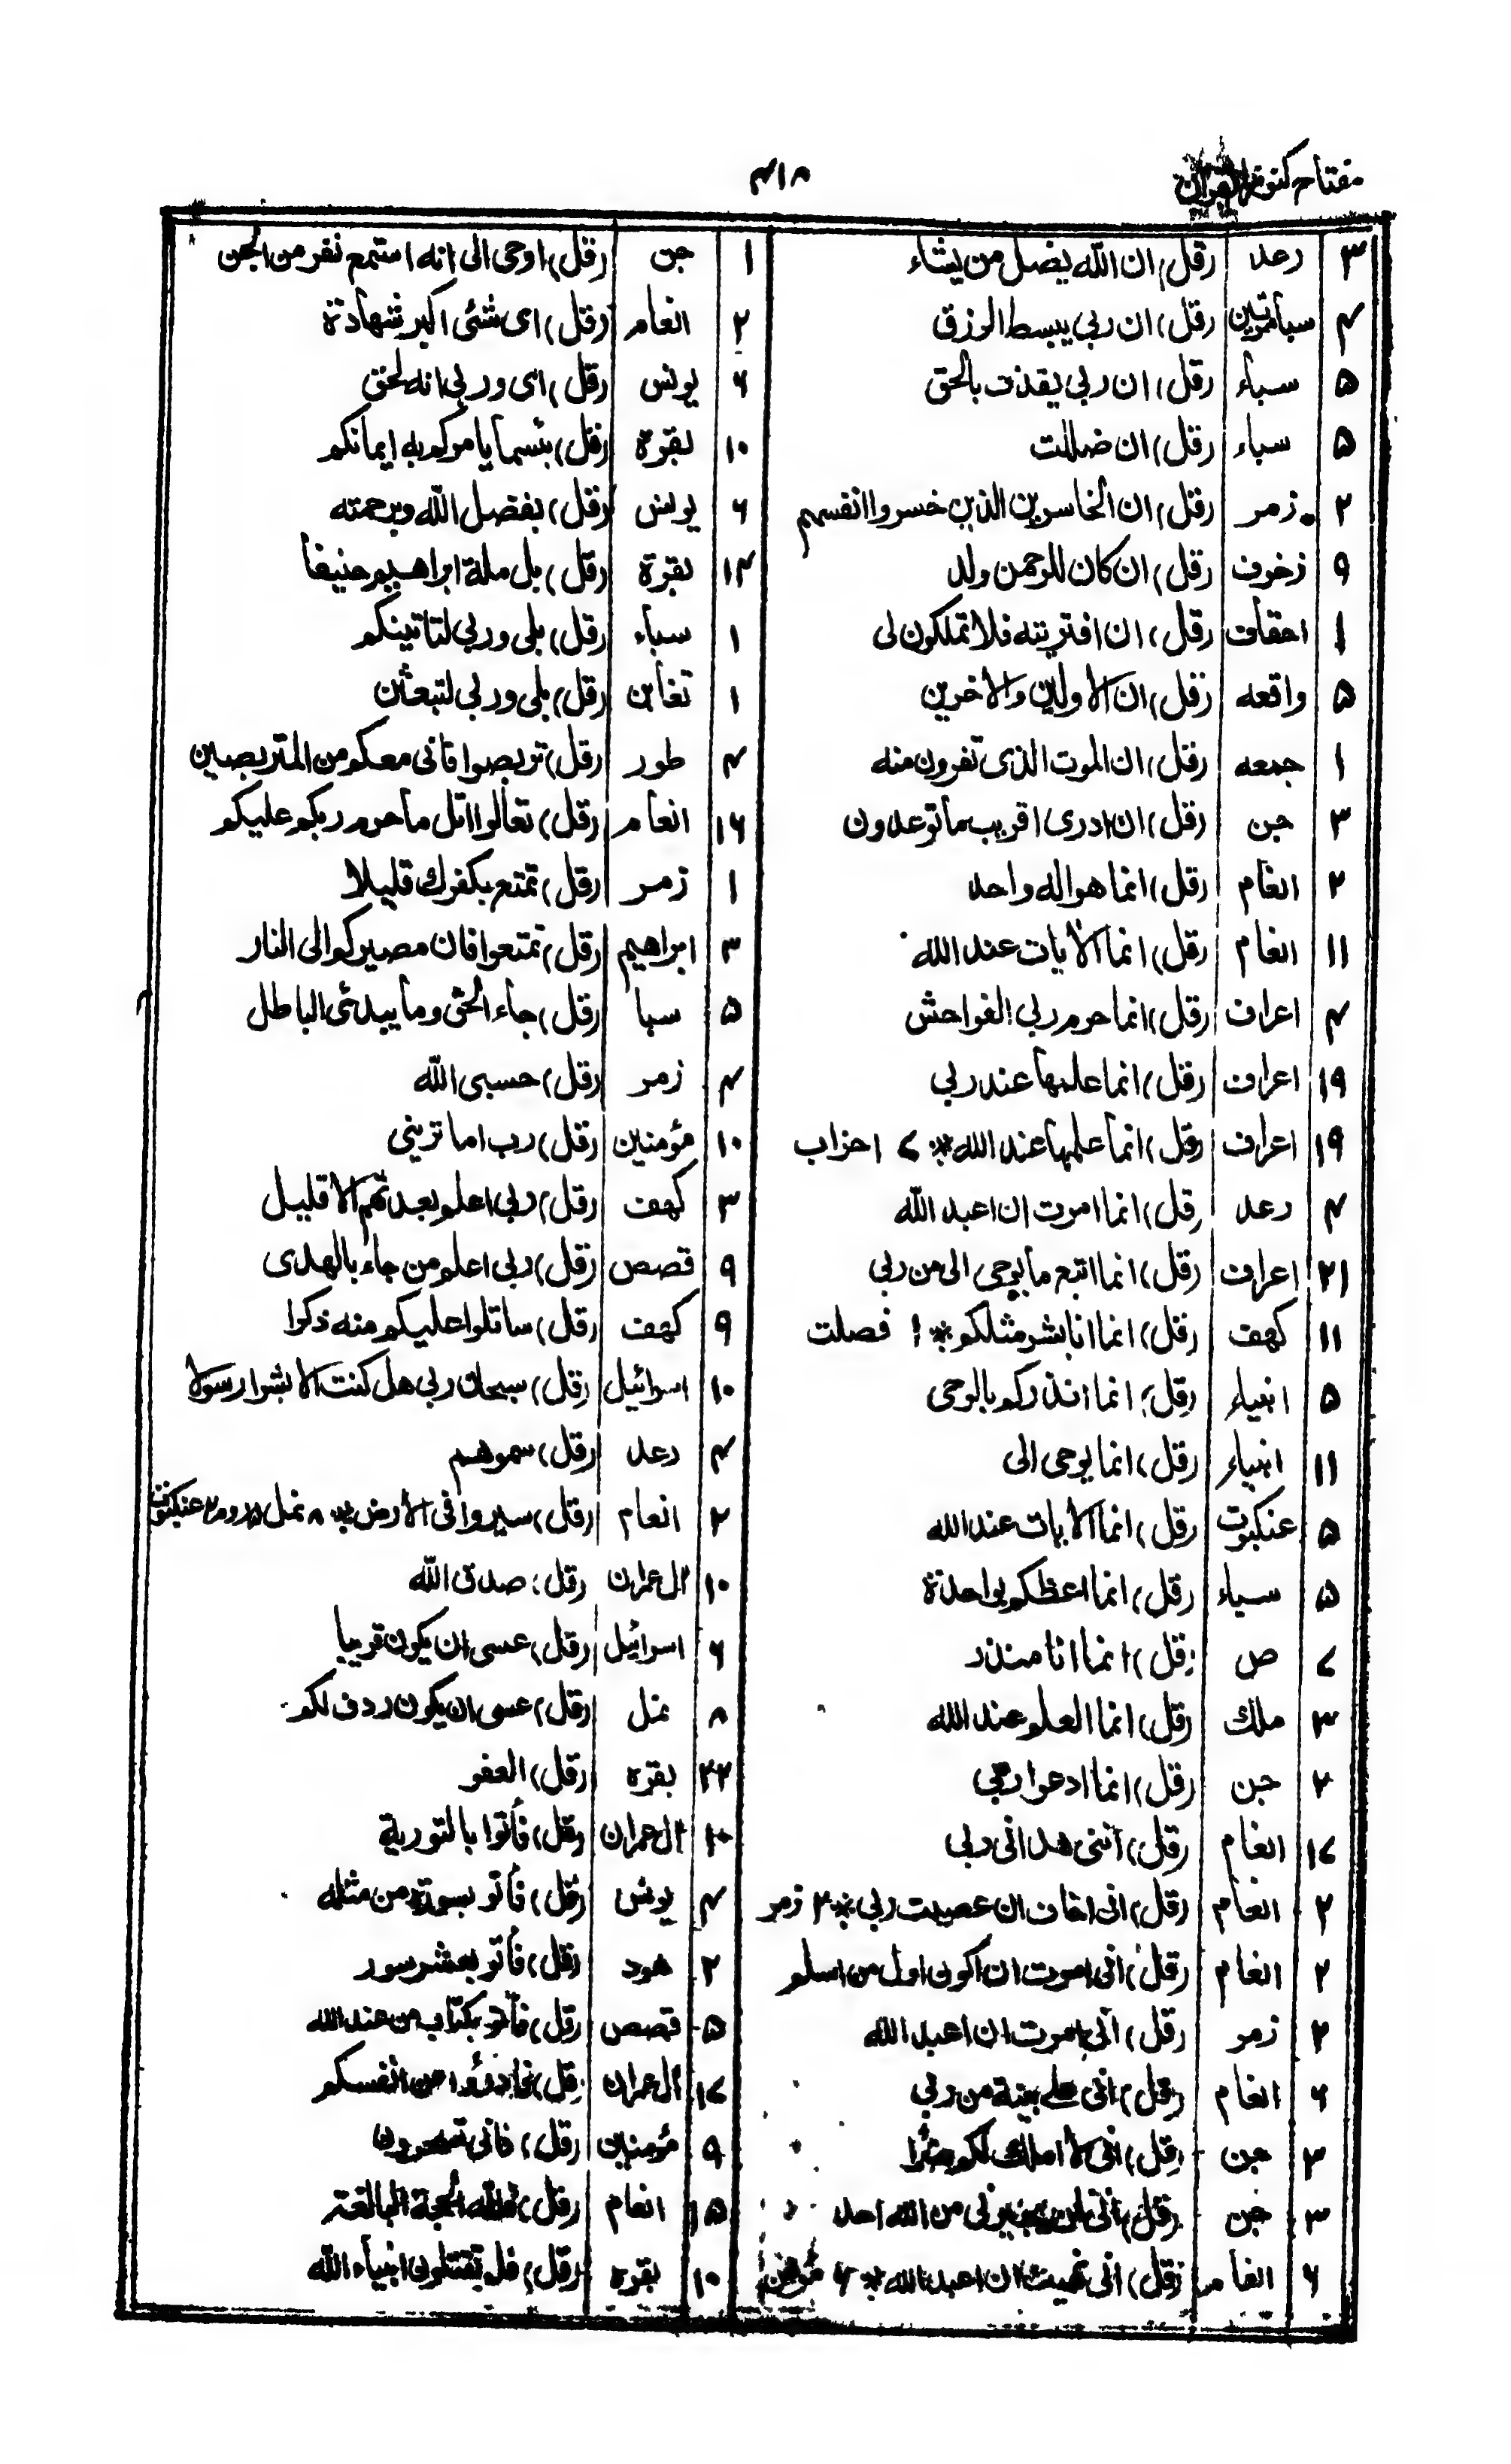 مفتاح كنوز القران
۴۱۸
۳ رعد (قل) ان الله يضل من يشاء
۴ سبا مرتين (قل) ان ربي يبسط الرزق
۵ سباء (قل) ان ربي يقذف بالحق
۵ سباء (قل) ان ضللت
۲ زمر (قل) ان الخاسرين الذين خسروا انفسهم
۹ زخرف (قل) ان كان للرحمن ولد
۱ احقاف (قل) ان افتريته فلا تملكون لى
۵ واقعه (قل) ان الاولين والاخرين
۱ جمعه (قل) ان الموت الذى تفرون منه
۳ جن (قل) ان ادرى اقريب ما توعدون
۲ انعام (قل) انما هو اله واحد
۱۱ انعام (قل) انما الايات عند الله
۴ اعراف (قل) انما حرم ربي الفواحش
۱۹ اعراف (قل) انما علمها عند ربي
۱۹ اعراف (قل) انما علمها عند الله * ۷ احزاب
۴ رعد (قل) انما امرت ان اعبد الله
۲۱ اعراف (قل) انما اتبع ما يوحى الى من ربي
۱۱ كهف (قل) انما انا بشر مثلكم * ۱ فصلت
۵ انبياء (قل) انما انذركم بالوحى
۱۱ انبياء (قل) انما يوحى الى
۵ عنكبوت (قل) انما الايات عند الله
۵ سباء (قل) انما اعظكم بواحدة
۷ ص (قل) انما انا منذر
۳ ملك (قل) انما العلم عند الله
۲ جن (قل) انما ادعوا ربي
۱۷ انعام (قل) اننى هدانى ربي
۲ انعام (قل) انى اخاف ان عصيت ربي * ۲ زمر
۲ انعام (قل) انى امرت ان اكون اول من اسلم
۲ زمر (قل) انى امرت ان اعبد الله
۶ انعام (قل) انى على بينة من ربي
۳ جن (قل) انى لا املك لكم ضرا
۳ جن (قل) انى لن يجيرنى من الله احد
۶ انعام (قل) انى نهيت ان اعبد الله * ۶ مؤمن
۱ جن (قل) اوحى الى انه استمع نفر من الجن
۲ انعام (قل) اى شئى اكبر شهادة
۶ يونس (قل) اى وربي انه لحق
۱۰ بقرة (قل) بئسما يامركم به ايمانكم
۶ يونس (قل) بفضل الله وبرحمته
۱۴ بقرة (قل) بل ملة ابراهيم حنيفا
۱ سباء (قل) بلى وربي لتاتينكم
۱ تغابن (قل) بلى وربي لتبعثن
۴ طور (قل) تربصوا فانى معكم من المتربصين
۱۶ انعام (قل) تعالوا اتل ما حرم ربكم عليكم
۱ زمر (قل) تمتع بكفرك قليلا
۳ ابراهيم (قل) تمتعوا فان مصيركم الى النار
۵ سبا (قل) جاء الحق وما يبدئى الباطل
۴ زمر (قل) حسبى الله
۱۰ مؤمنين (قل) رب اما ترينى
۳ كهف (قل) ربي اعلم بعدتهم الا قليل
۹ قصص (قل) ربي اعلم من جاء بالهدى
۹ كهف (قل) ساتلوا عليكم منه ذكرا
۱۰ اسرائيل (قل) سبحان ربي هل كنت الا بشرا رسولا
۴ رعد (قل) سموهم
۲ انعام (قل) سيروا فى الارض * ۸ نمل ۵ روم ۲ عنكبوت
۱۰ ال عمران (قل) صدق الله
۶ اسرائيل (قل) عسى ان يكون قريبا
۸ نمل (قل) عسى ان يكون ردف لكم
۲۲ بقره (قل) العفو
۱۰ ال عمران (قل) فأتوا بالتورية
۴ يونس (قل) فأتو بسورة من مثله
۲ هود (قل) فأتو بعشر سور
۵ قصص (قل) فأتو بكتاب من عند الله
۱۷ ال عمران (قل) فادرؤا من انفسكم
۹ مؤمنين (قل) فانى تسحرون
۱۵ انعام (قل) فلله الحجة البالغة
۱۰ بقره (قل) فلم تقتلون انبياء الله